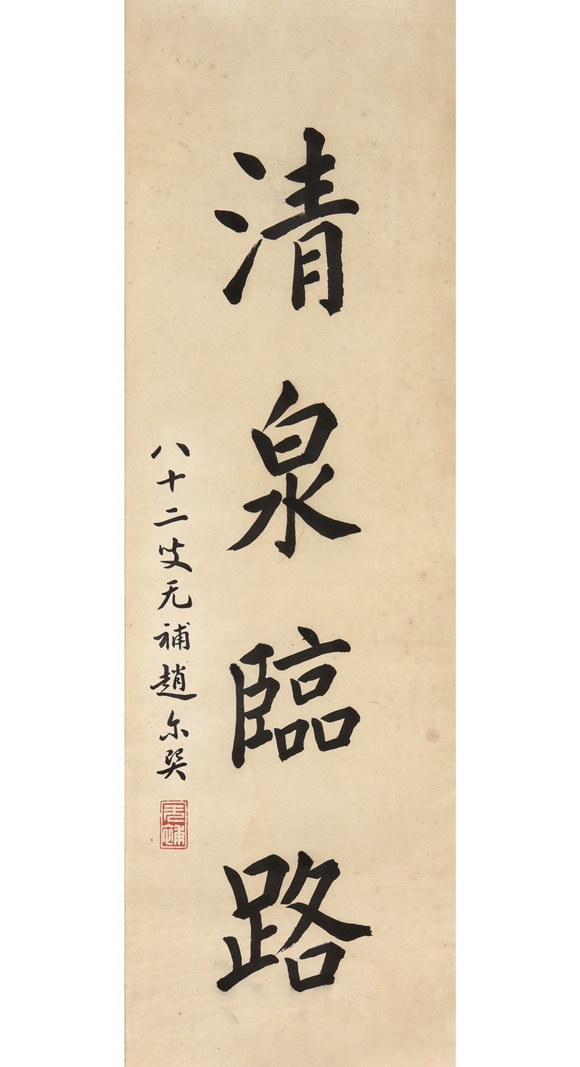 清泉臨路
八十二叟无補趙尔巽
无補